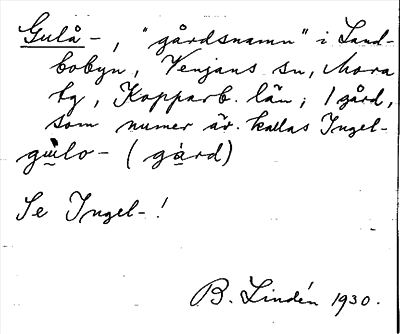 Gulå-, "gårdsnamn" i Land-
bobyn, Venjans sn, Mora
tg, Kopparb. län; 1 gård,
som numer är kallas Ingel-
gulo- (gård)
Se Ingel-!
B. Lindén 1930.